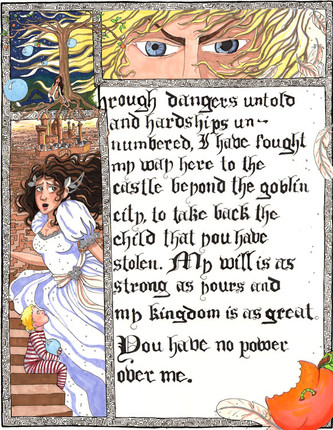 Through dangers untold
and hardships un-
numbered, I have fought
my way here to the
castle beyond the goblin
city, to take back the
child that you have
stolen. My will is as
strong as yours and
my kingdom is as great.
You have no power
over me.